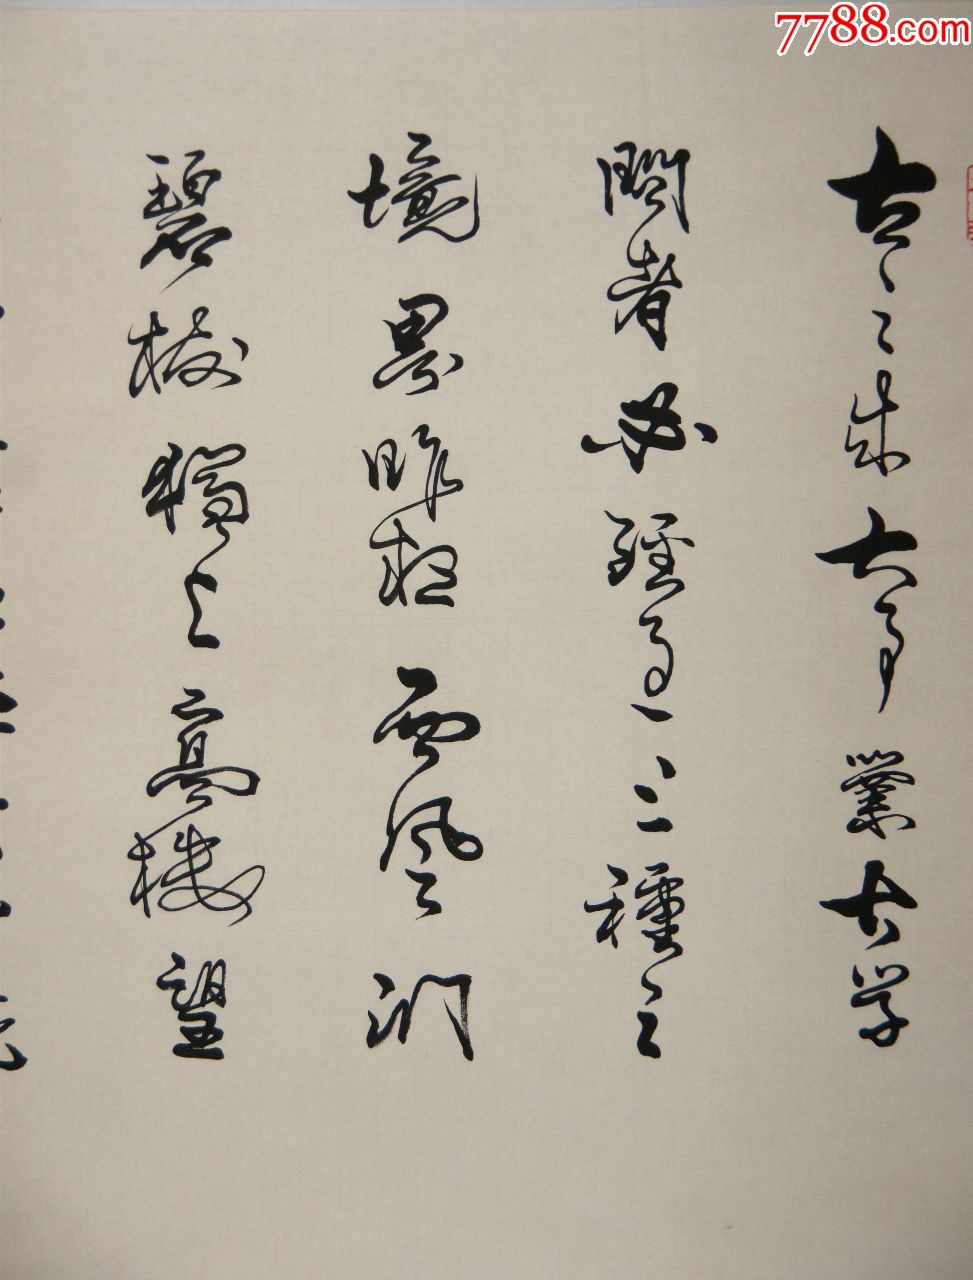 7788.com
古今之成大事業大学
問者必經過三種之
境界昨夜西風凋
碧樹獨上高樓望